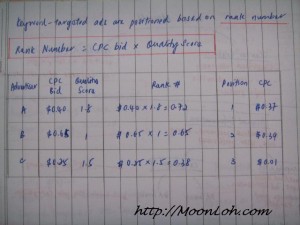 Keyword-targeted ads are positioned based on rank number
Rank Number = CPC bid x Quality Score
Advertiser CPC Bid Quality Score Rank # Position CPC
A $0.40 1.8 $0.40 x 1.8 = 0.72 1 $0.37
B $0.65 1 $0.65 x 1 = 0.65 2 $0.39
C $0.25 1.5 $0.25 x 1.5 = 0.38 3 $0.01
http://MoonLoh.com